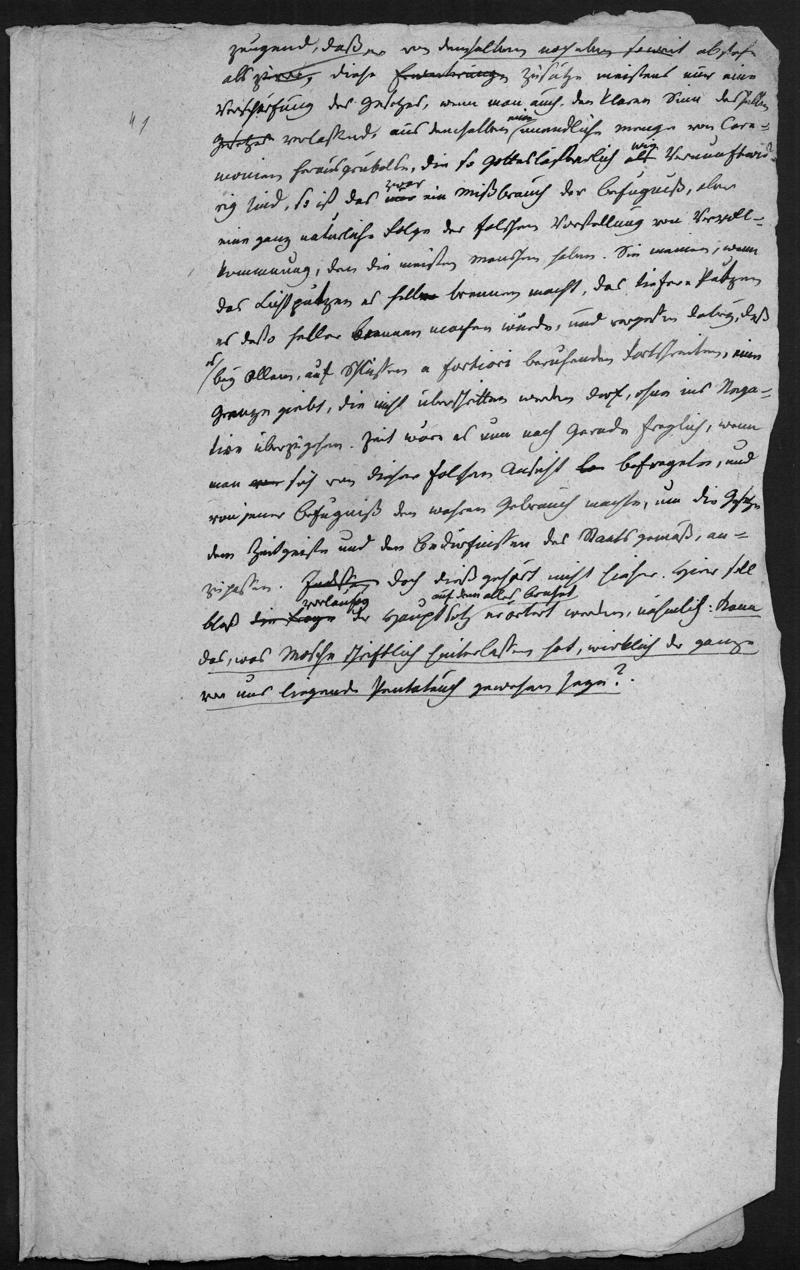 zeugend, daß er von demselben noch eben so weit abstehe
als zuvor, diese Erweiterungen Zusätze meistens nur eine
Verschärfung des Gesetzes, wenn man auch den klaren Sinn desselben
Gesetzes verlassend, aus demselben eine unendliche Menge von Care=
monien herausgrübelte, die so gotteslästerlich als wie Vernunftwid=
rig sind, so ist das zwar ein Mißbrauch der Befugniß, aber
eine ganz natürliche Folge der falschen Vorstellung von Vervoll=
kommnung, den die meisten Menschen haben. Sie meinen, wenn
das Lichtputzen es heller brennen macht, das tiefere Putzen
es desto heller brennen machen würde, und vergessen dabey, daß
es bey allem, auf Schlüssen a fortiori beruhenden Fortschreiten, eine
Grenze giebt, die nicht überschritten werden darf, ohne ins Nega=
tive überzugehen. Zeit wäre es nun nach gerade freylich, wenn
man sich von dieser falschen Ansicht befreyete, und
von jener Befugniß den wahren Gebrauch machte, um die Gesetze
dem Zeitgeiste und den Bedürfnissen des Staats gemäß, an=
zupassen. Indessen doch dieß gehört nicht hieher. Hier soll
bloß die Frage vorläufig der Hauptsatz auf dem alles beruhet erörtert werden, nähmlich: Kann
das, was Mosche schriftlich hinterlassen hat, wirklich der ganze
vor uns liegende Pentateuch gewesen seyn?
41